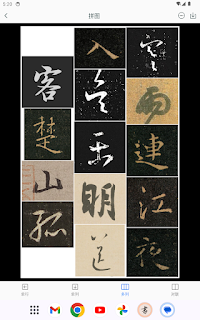 拼图
寒雨連江夜
入吳平明送
客楚山孤